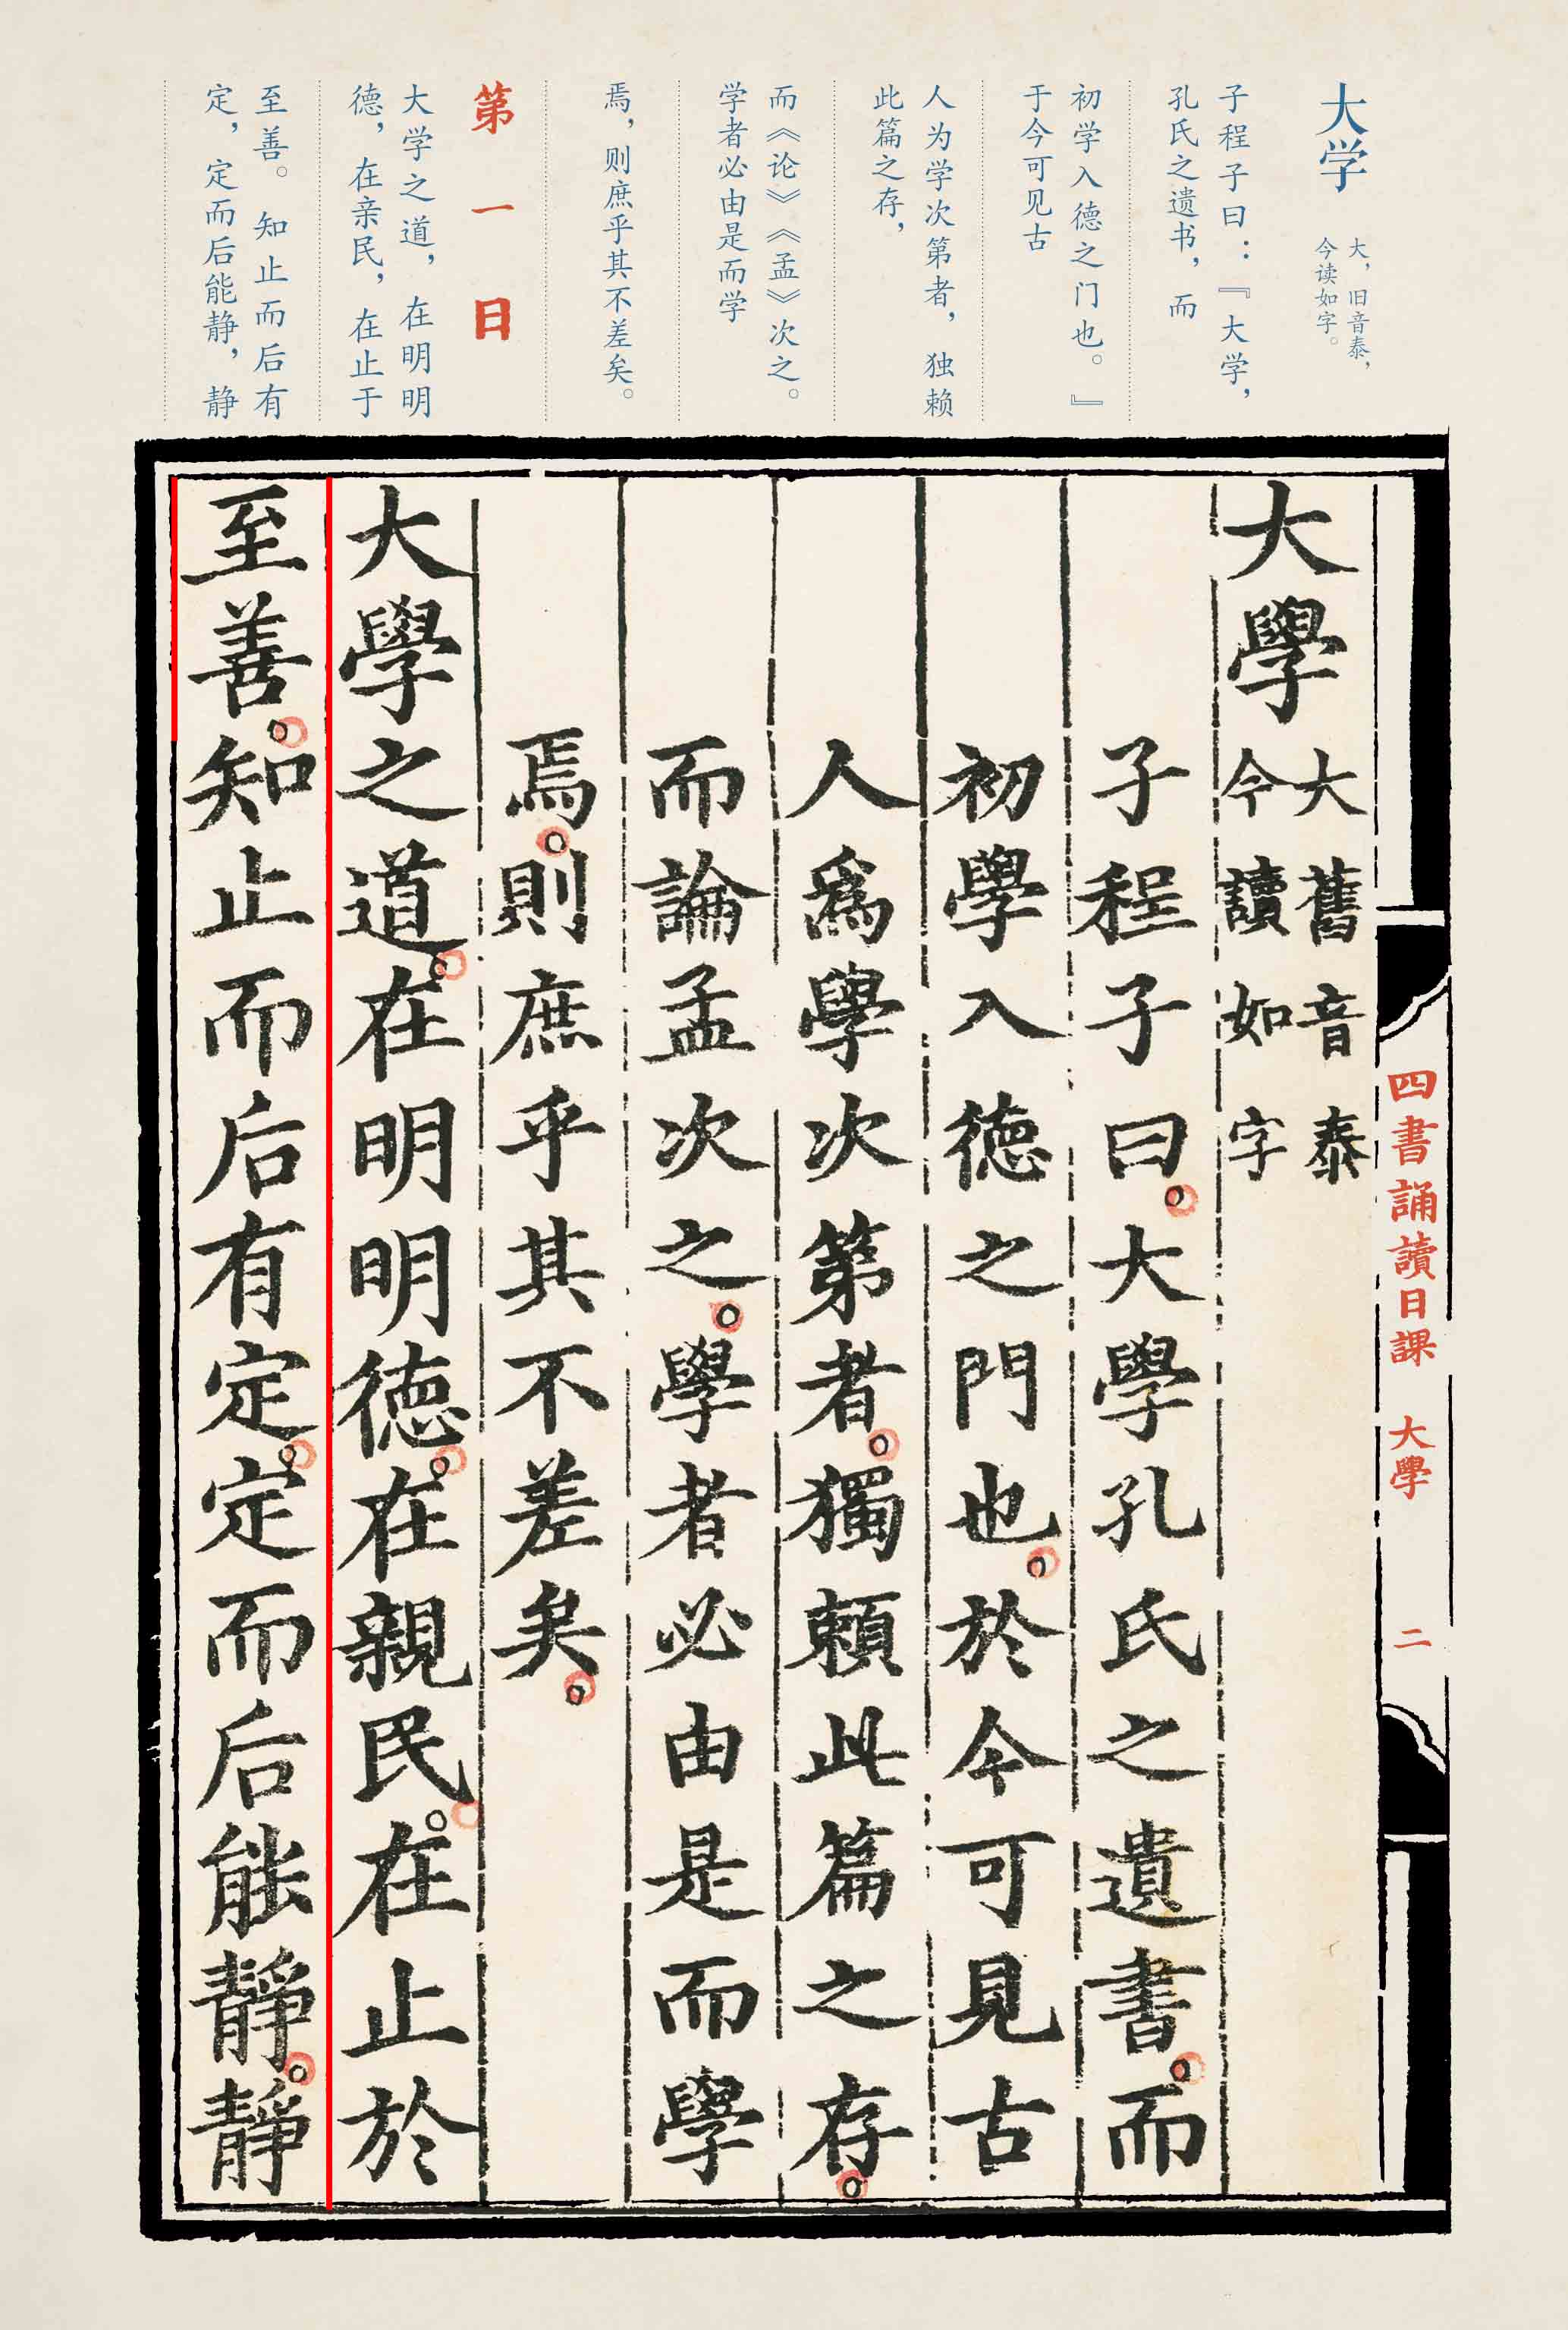 大学
大，旧音泰，
今读如字。
子程子曰：『大学，
孔氏之遗书，而
初学入德之门也。』
于今可见古
人为学次第者，独赖
此篇之存，
而《论》《孟》次之。
学者必由是而学
焉，则庶乎其不差矣。
第一日
大学之道，在明明
德，在亲民，在止于
至善。知止而后有
定，定而后能静，静
四書誦讀日課 大學 二
大學
大舊音泰
今讀如字
子程子曰。大學孔氏之遺書。而
初學入德之門也。於今可見古
人爲學次第者。獨賴此篇之存。
而論孟次之。學者必由是而學
焉。則庶乎其不差矣。
大學之道。在明明德。在親民。在止於
至善。知止而后有定。定而后能靜。靜